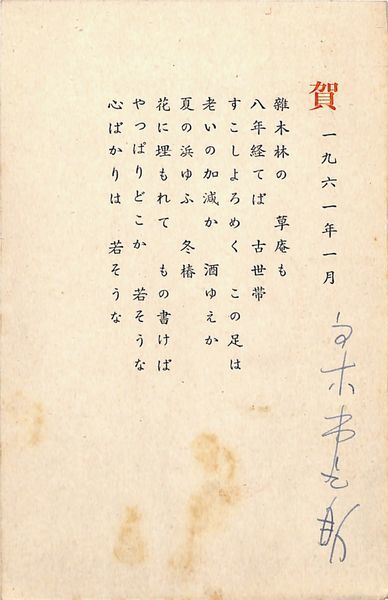 賀 一九六一年一月
雑木林の 草庵も
八年経てば 古世帯
すこしよろめく この足は
老いの加減か 酒ゆえか
夏の浜ゆふ 冬椿
花に埋もれて もの書けば
やっぱりどこか 若そうな
心ばかりは 若そうな